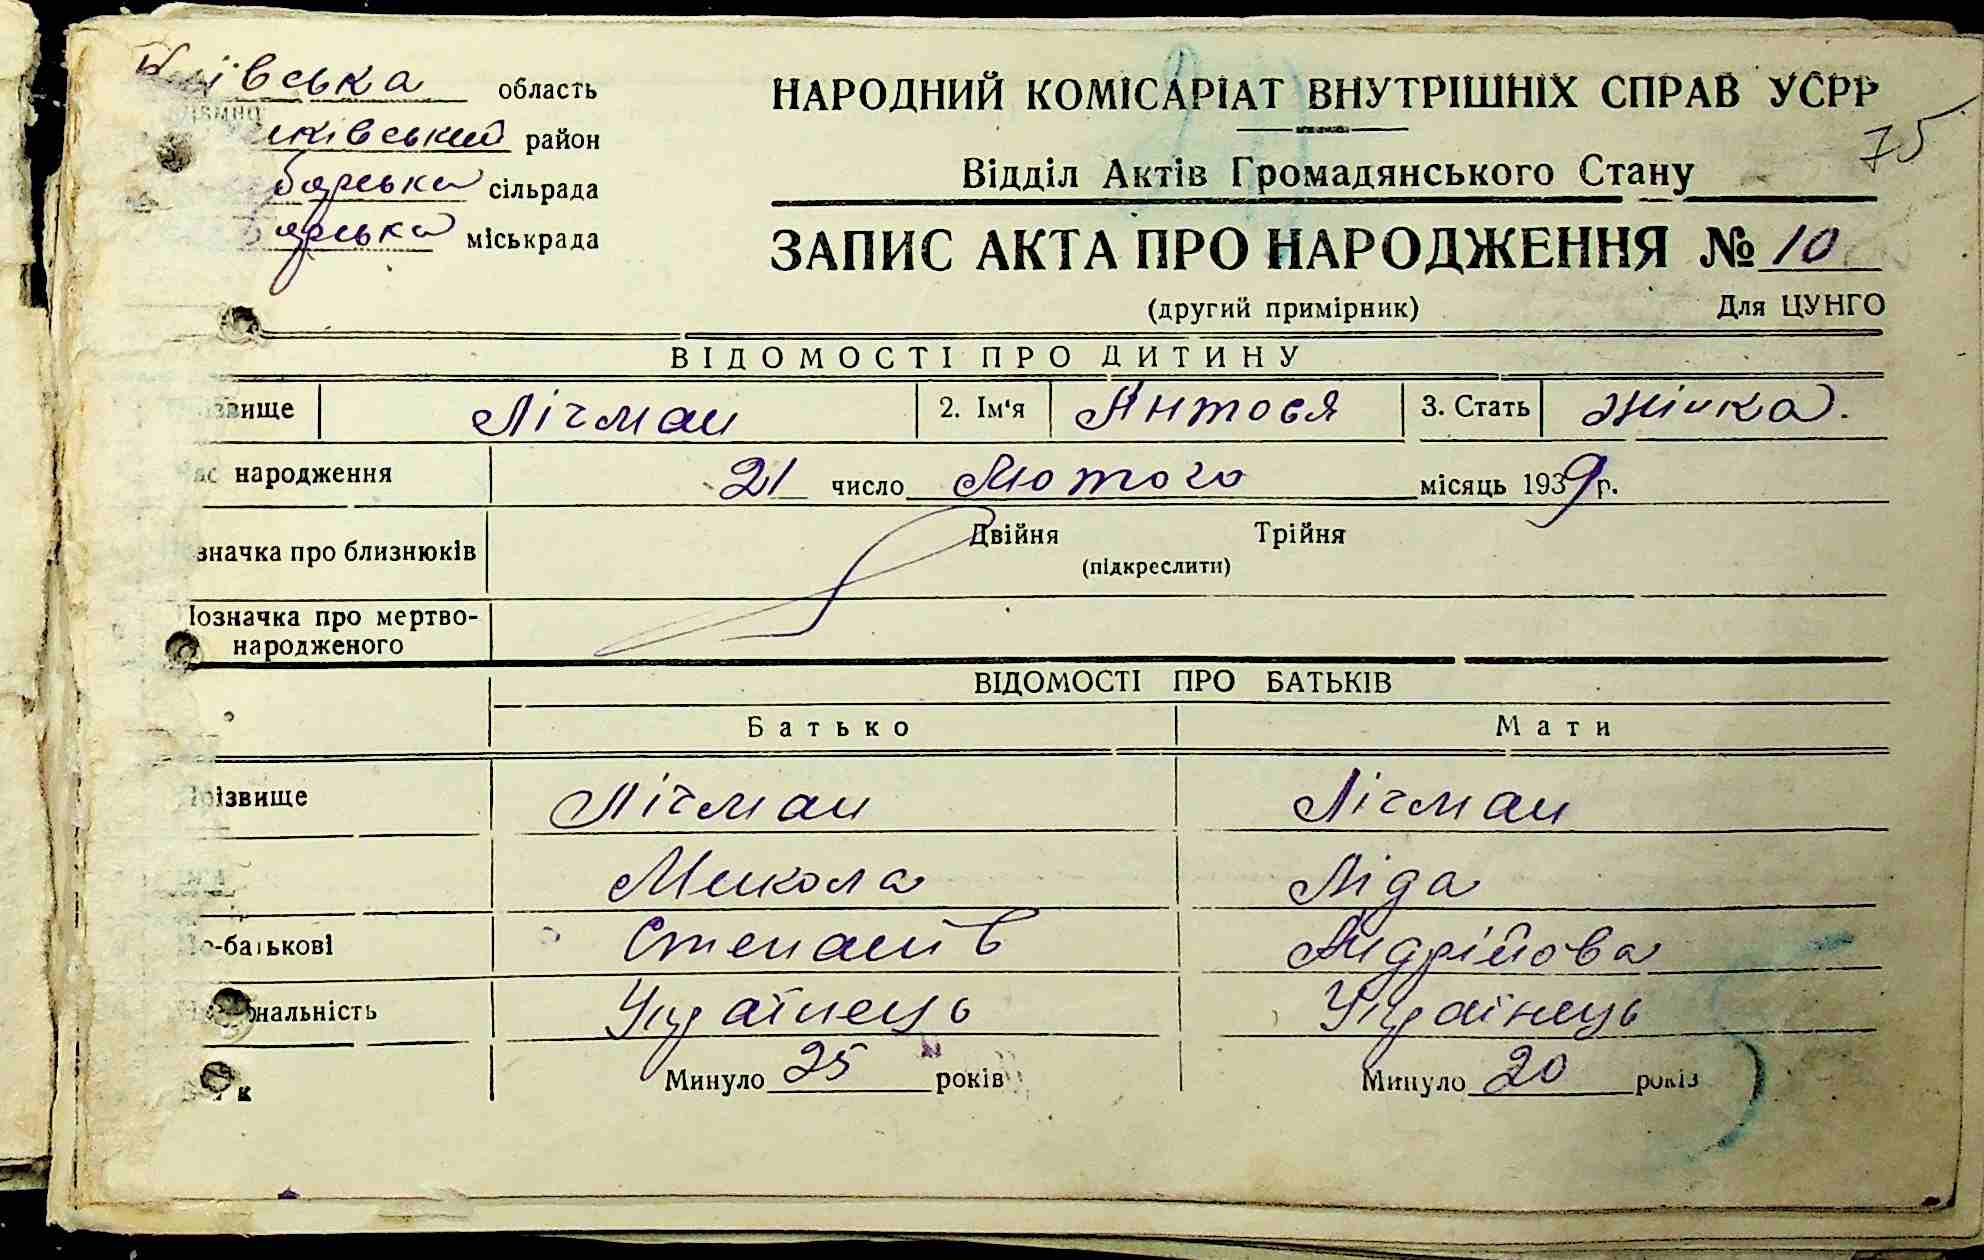 Київська область
район
сільрада
міськрада
НАРОДНИЙ КОМІСАРІАТ ВНУТРІШНІХ СПРАВ УСРР
75
Відділ Актів Громадянського Стану
ЗАПИС АКТА ПРО НАРОДЖЕННЯ № 10
(другий примірник) Для ЦУНГО
ВІДОМОСТІ ПРО ДИТИНУ
Прізвище Лічман 2. Ім'я Антося 3. Стать жінка.
народження 21 число Лютого місяць 1939 р.
Двійня Трійня
значка про близнюків (підкреслити)
Позначка про мертво-
народженого
ВІДОМОСТІ ПРО БАТЬКІВ
Батько Мати
Прізвище Лічман Лічман
Микола Ліда
По-батькові Степанів Андрійова
Національність Українець Українець
Минуло 25 років Минуло 20 років